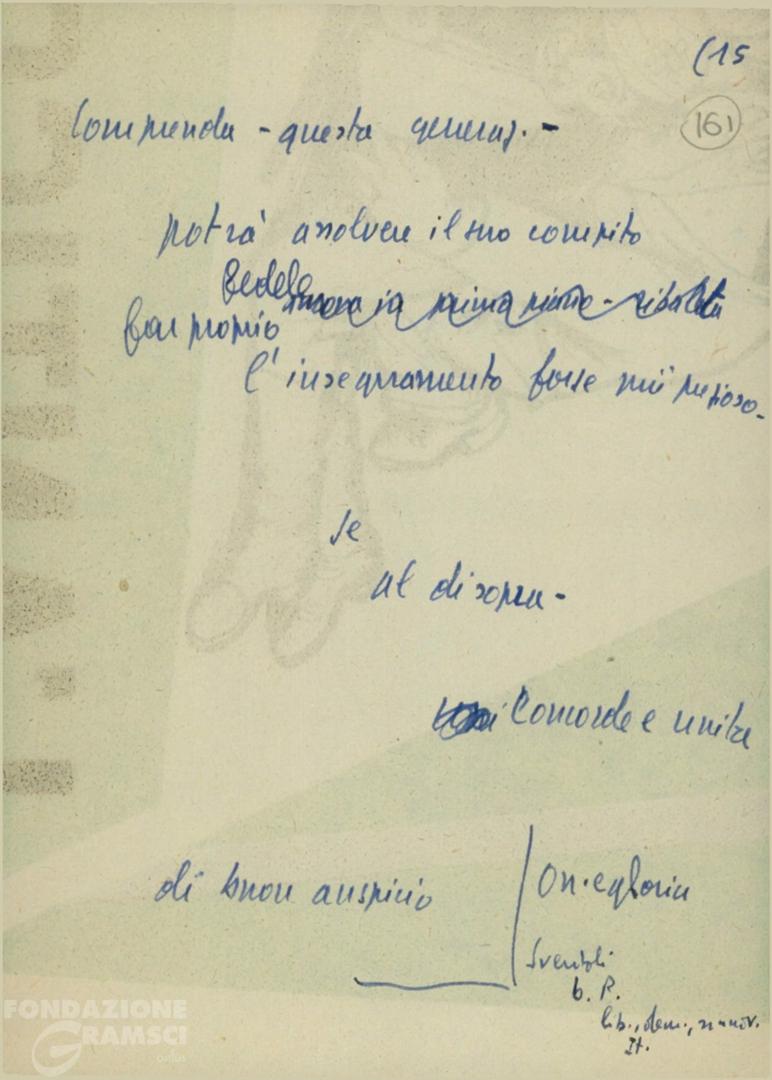 (15
161
Comprenda - questa generaz. -
potrà assolvere il suo compito
fedele
far proprio
l'insegnamento forse più prezioso -
Se
al disopra -
Concorde e unita
di buon auspicio
On. e gloria
Sventoli
b. R.
lib., dem., rinnov.
It.
FONDAZIONE
GRAMSCI
onlus